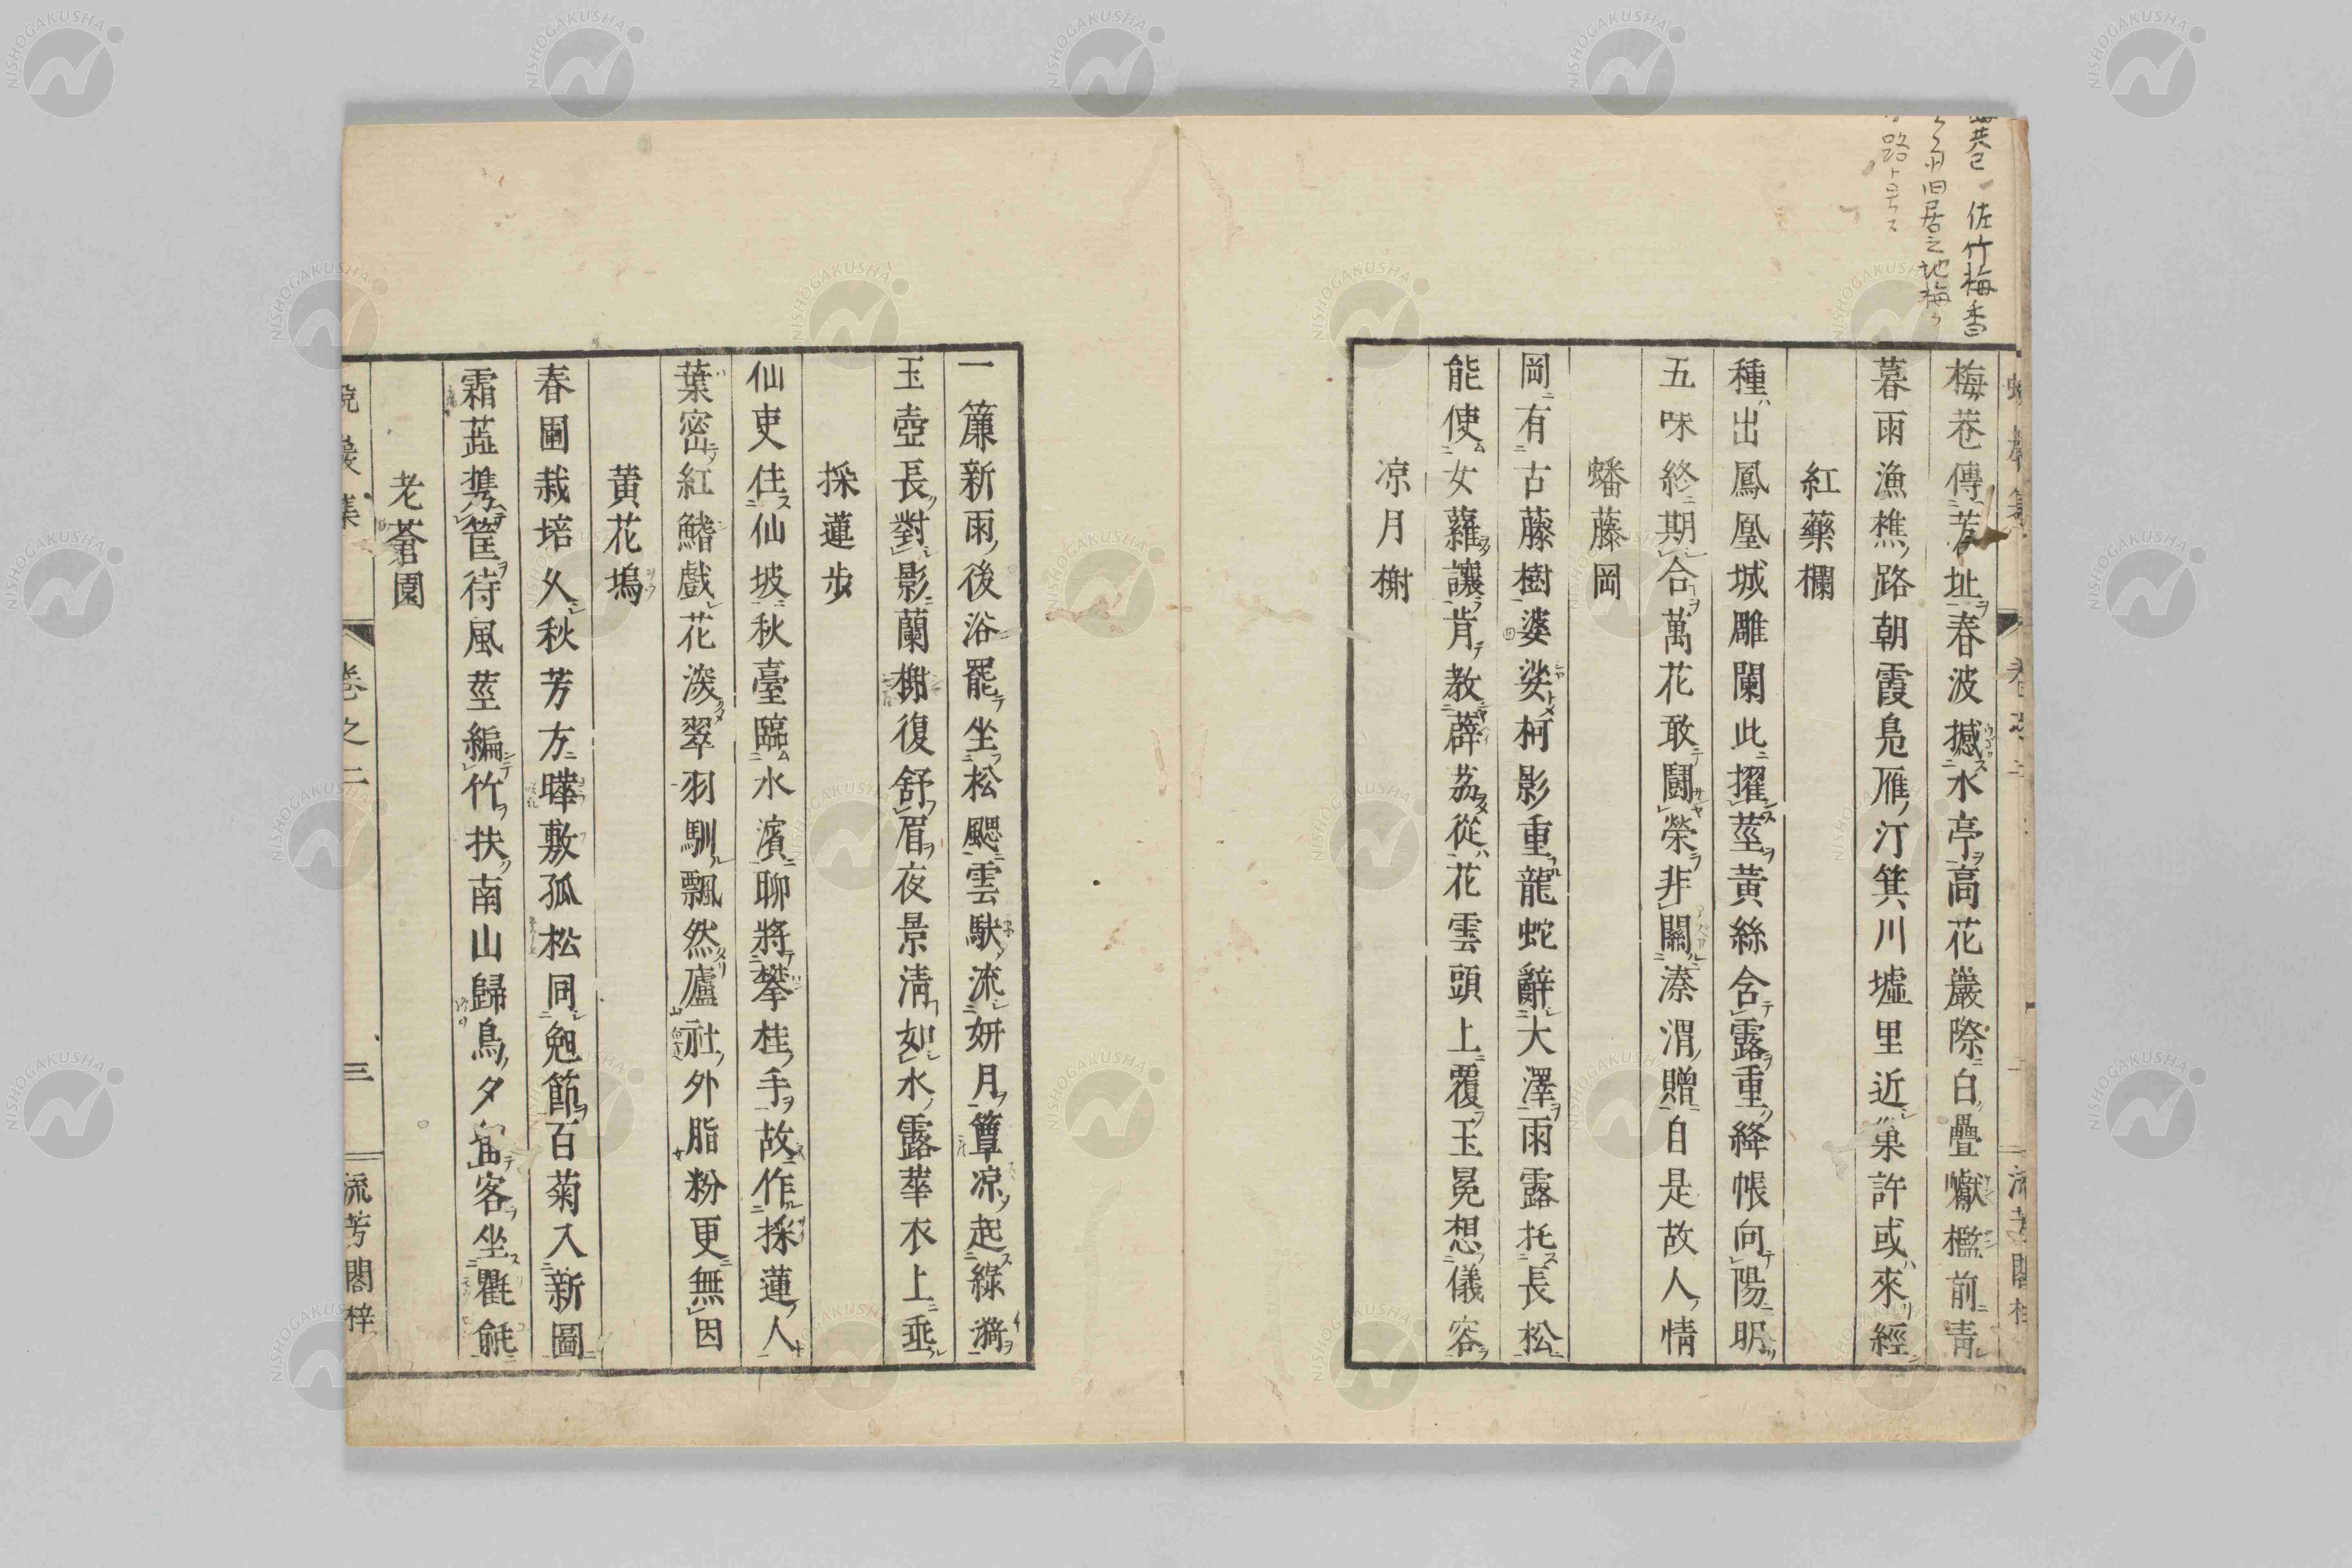 佐竹梅香
旧居之地梅
路ト号ス
梅巷傳芳址春波撼水亭高花巖際白疊巘檻前靑
暮雨漁樵路朝霞鳧雁汀箕川墟里近巢許或來經
紅藥欄
種出鳳凰城雕闌此擢莖黃絲含露重絳帳向陽明
五味終期合萬花敢鬪榮非關溱渭贈自是故人情
蟠藤岡
岡有古藤樹婆娑柯影重龍蛇辭大澤雨露托長松
能使女蘿讓肯教薜荔從花雲頭上覆玉冕想儀容
凉月榭
一簾新雨後浴罷坐松颸雲駃流妍月簟凉起綠漪
玉壺長對影蘭榭復舒眉夜景淸如水露華衣上垂
採蓮步
仙吏住仙坡秋臺臨水濱聊將攀桂手故作採蓮人
葉密紅鰭戲花深翠羽馴飄然廬社外脂粉更無因
黄花塢
春圃栽培久秋芳方曄敷孤松同勉節百菊入新圖
霜蕋携筐待風莖編竹扶南山歸鳥夕留客坐氍毹
老蒼園
卷之二
三
流芳閣梓